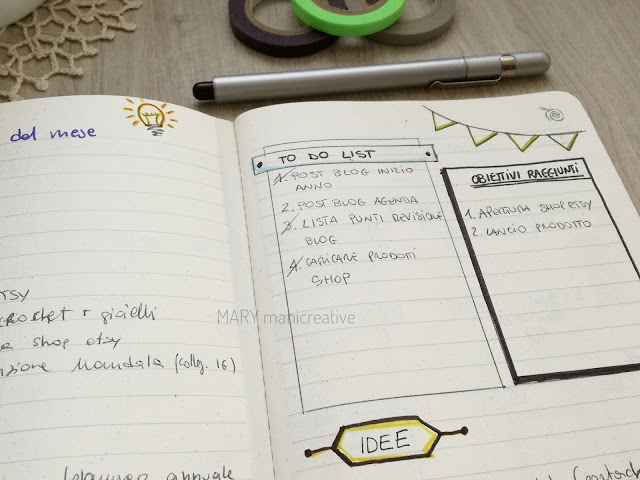 del mese
TO DO LIST
1. POST BLOG INIZIO
ANNO
2. POST BLOG AGENDA
3. LISTA PUNTI REVISIONE
BLOG
4. CARICARE PRODOTTI
SHOP
OBIETTIVI RAGGIUNTI
1. APERTURA SHOP ETSY
2. LANCIO PRODOTTO
TSY
CROCHET + gioielli
shop etsy
Mandala (colleg. 16)
MARY manicreative
IDEE
annuale